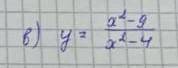 в) y = \frac{x^2-9}{x^2-4}